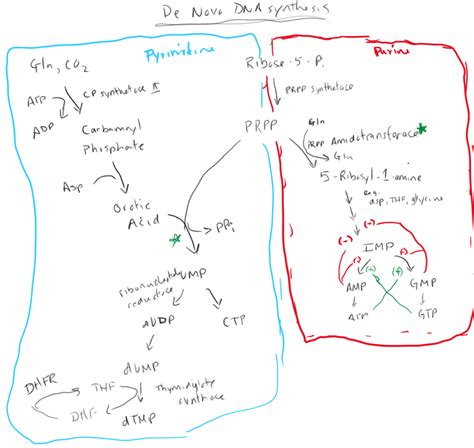 De Novo DNA synthesis
Pyrimidine
Gln, CO2
ATP
CP synthetase II
ADP
Carbamoyl
Phosphate
Asp
Orotic
Acid
PPi
UMP
ribonucleotide
reductase
dUDP
CTP
dUMP
DHFR
THF
Thymidylate
synthase
DHF
dTMP
Purine
Ribose-5-P.
PRPP synthetase
PRPP
Gln
PRPP Amidotransferase
Glu
5-Ribosyl-1-amine
Asp, THF, glycine
(-)
(-)
IMP
(-)
(+)
(+)
(-)
AMP
GMP
ATP
GTP